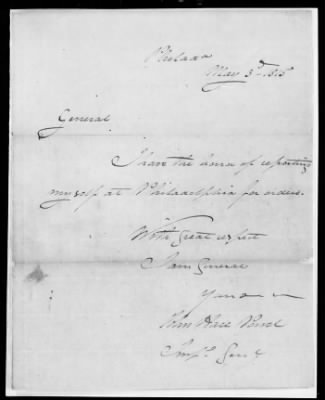 Philada
May 3d 1815
General
I have the honor of reporting
myself at Philadelphia for orders.
With great respect
I am General
Yours
John Hare Powel
Insp. Genl